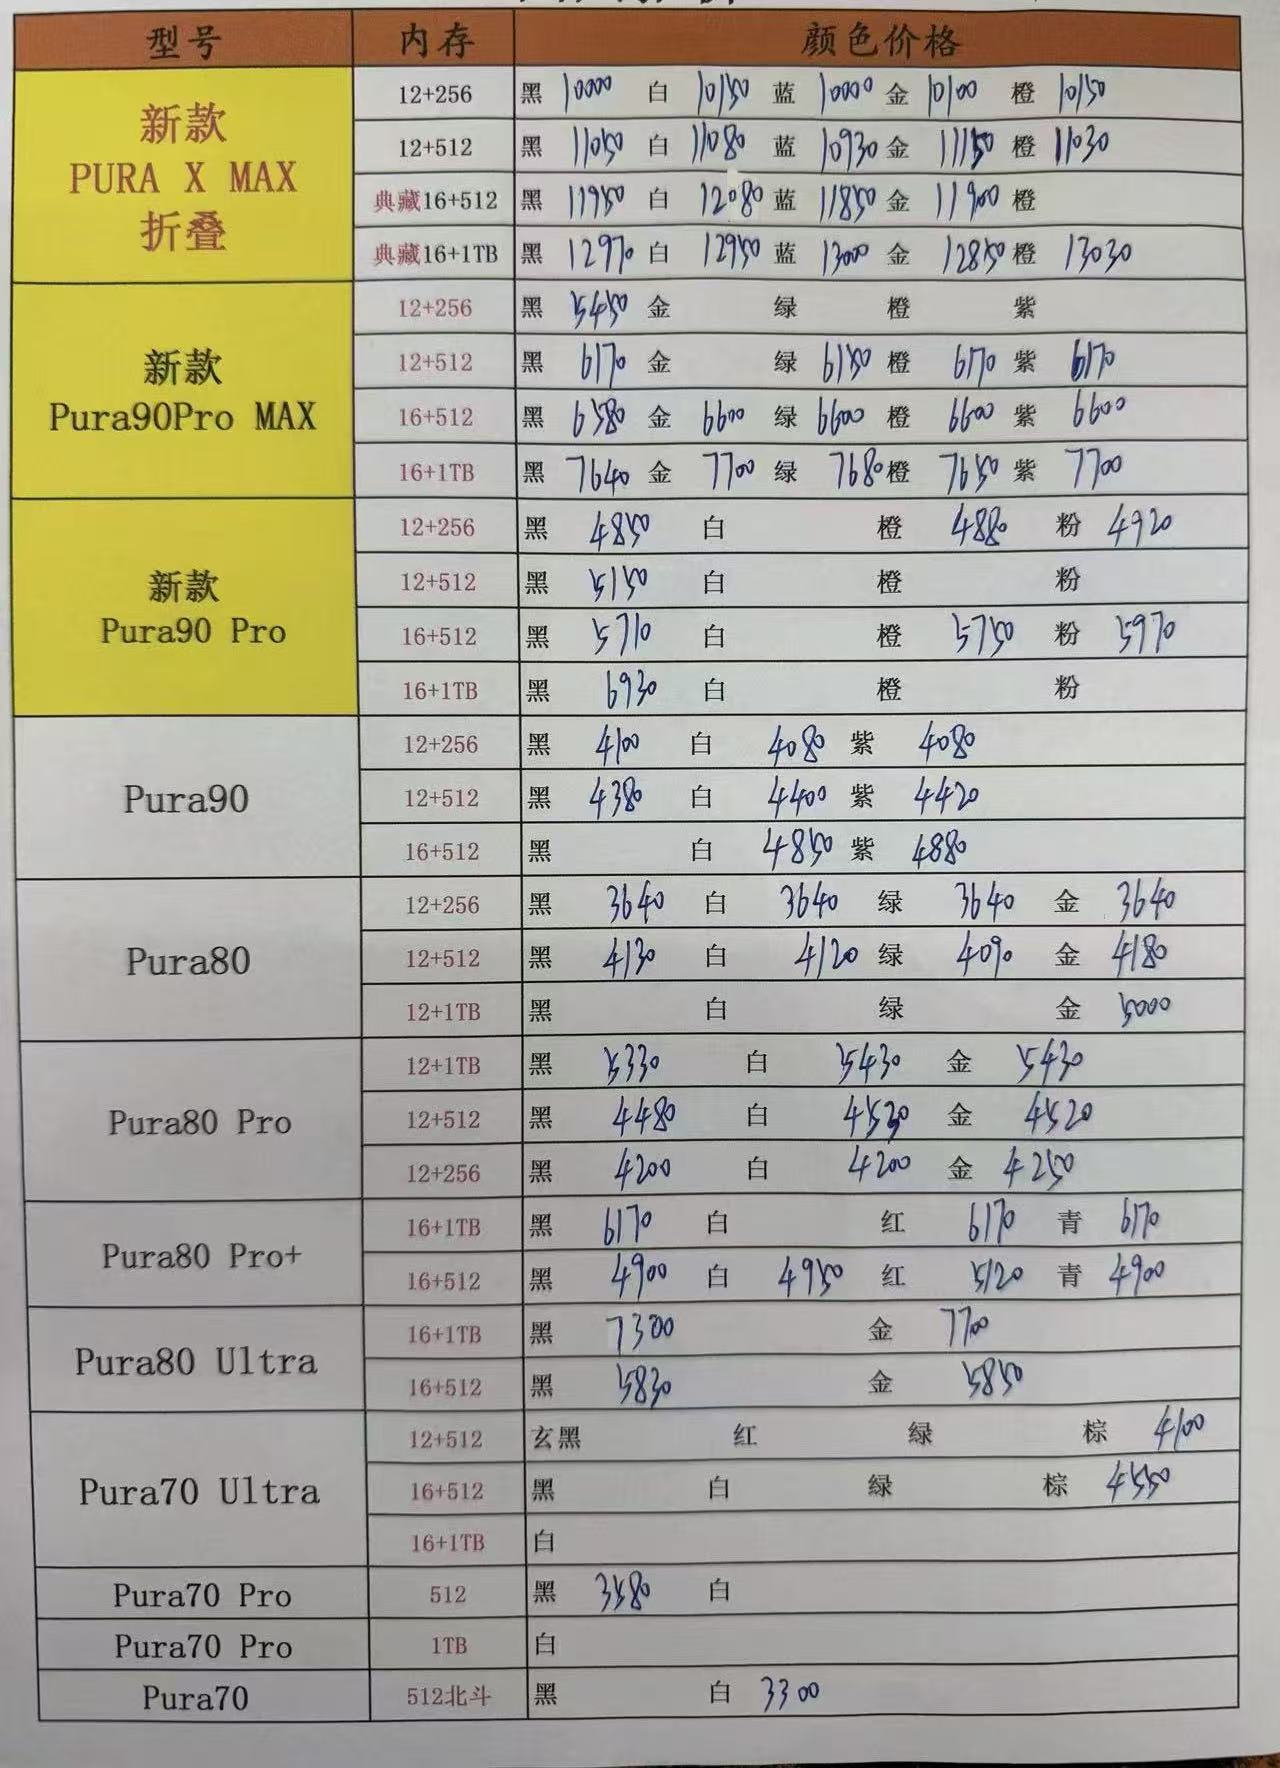 型号 内存 颜色价格
新款 PURA X MAX 折叠
12+256 黑 10000 白 10150 蓝 10000 金 10100 橙 10150
12+512 黑 11050 白 11080 蓝 10930 金 11150 橙 11030
典藏16+512 黑 11950 白 12080 蓝 11850 金 11900 橙
典藏16+1TB 黑 12970 白 12950 蓝 13000 金 12850 橙 13030
新款 Pura90Pro MAX
12+256 黑 5450 金 绿 橙 紫
12+512 黑 6170 金 绿 6150 橙 6170 紫 6170
16+512 黑 6580 金 6600 绿 6600 橙 6600 紫 6600
16+1TB 黑 7640 金 7700 绿 7680 橙 7650 紫 7700
新款 Pura90 Pro
12+256 黑 4850 白 橙 4880 粉 4920
12+512 黑 5150 白 橙 粉
16+512 黑 5710 白 橙 5750 粉 5970
16+1TB 黑 6930 白 橙 粉
Pura90
12+256 黑 4100 白 4080 紫 4080
12+512 黑 4380 白 4400 紫 4420
16+512 黑 白 4850 紫 4880
Pura80
12+256 黑 3640 白 3640 绿 3640 金 3640
12+512 黑 4130 白 4120 绿 4090 金 4180
12+1TB 黑 白 绿 金 5000
Pura80 Pro
12+1TB 黑 5330 白 5430 金 5430
12+512 黑 4480 白 金 4520
12+256 黑 4200 白 4200 金 4250
Pura80 Pro+
16+1TB 黑 6170 白 红 6170 青 6170
16+512 黑 4900 白 4950 红 5120 青 4900
Pura80 Ultra
16+1TB 黑 7300 金 7700
16+512 黑 5830 金 5850
Pura70 Ultra
12+512 玄黑 红 绿 棕 4100
16+512 黑 白 绿 棕 4550
16+1TB 白
Pura70 Pro 512 黑 3580 白
Pura70 Pro 1TB 白
Pura70 512北斗 黑 白 3300